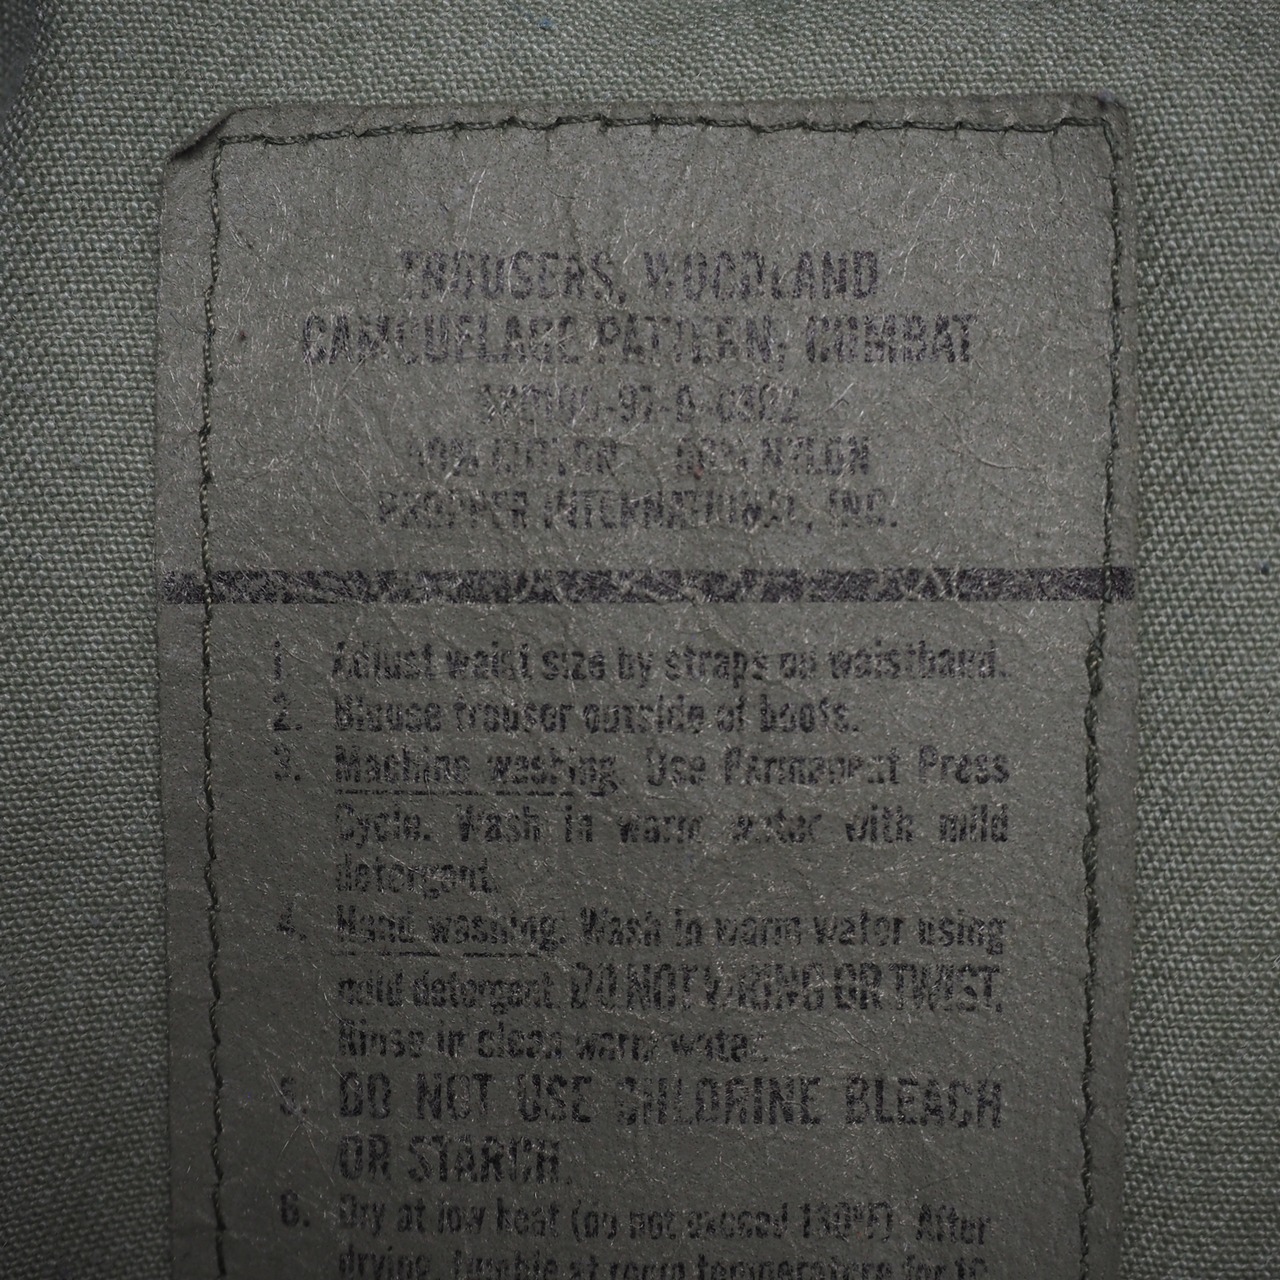 TROUSERS, WOODLAND
CAMOUFLAGE PATTERN, COMBAT
COTTON NYLON
PROPPER INTERNATIONAL, INC.
1. Adjust waist size by straps on waistband.
2. Blouse trouser outside of boots.
3. Machine washing. Use Permanent Press
Cycle. Wash in warm water with mild
detergent.
4. Hand washing: Wash in warm water using
mild detergent. DO NOT WRING OR TWIST.
Rinse in clean warm water.
5. DO NOT USE CHLORINE BLEACH
OR STARCH.
6. Dry at low heat (do not exceed 130°F). After
drying, tumble at room temperature for 10